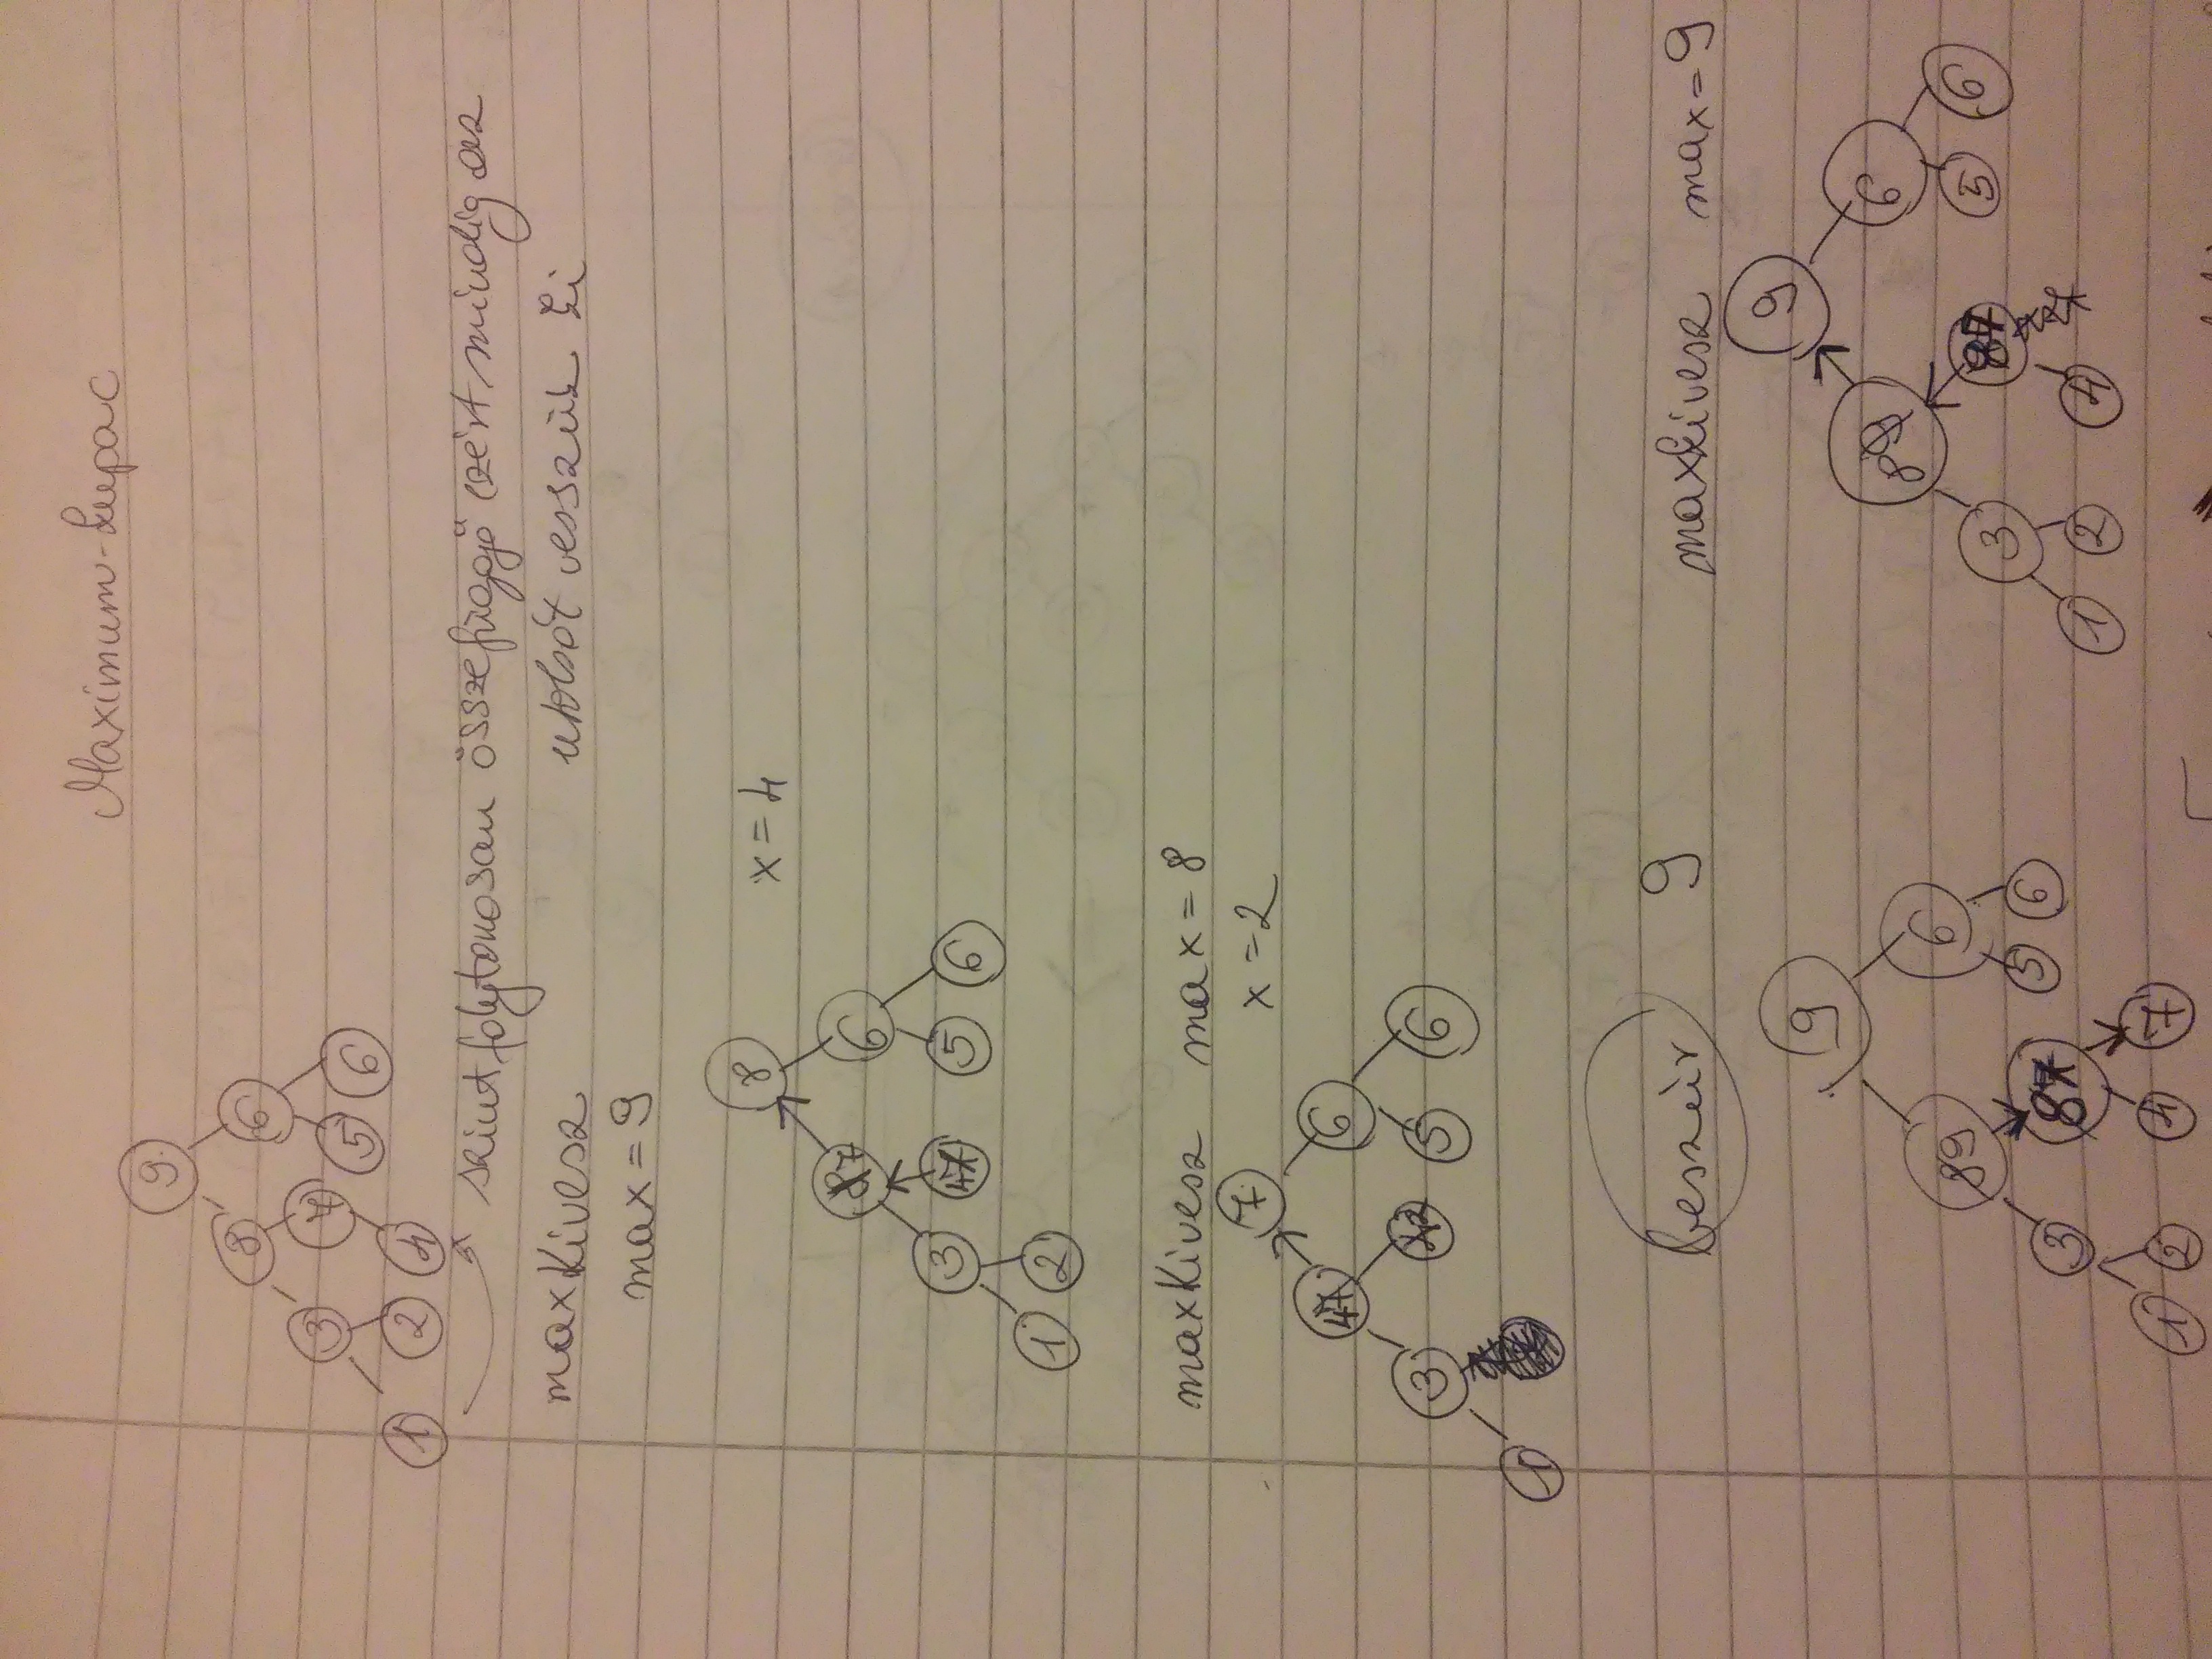 Maximum-kupac
9
8 6
3 7 5 6
1 2 4
szintfolytonosan összefüggő ezért mindig az
utolsót vesszük ki
maxKivesz
max = 9
8 x = 4
87 6
3 47 5 6
1 2
maxKivesz max = 8
7 x = 2
47 6
3 42 5 6
1
beszúr 9 maxkivesz max = 9
9 9
89 6 89 6
3 87 5 6 3 87 5 6
1 2 4 7 1 2 4